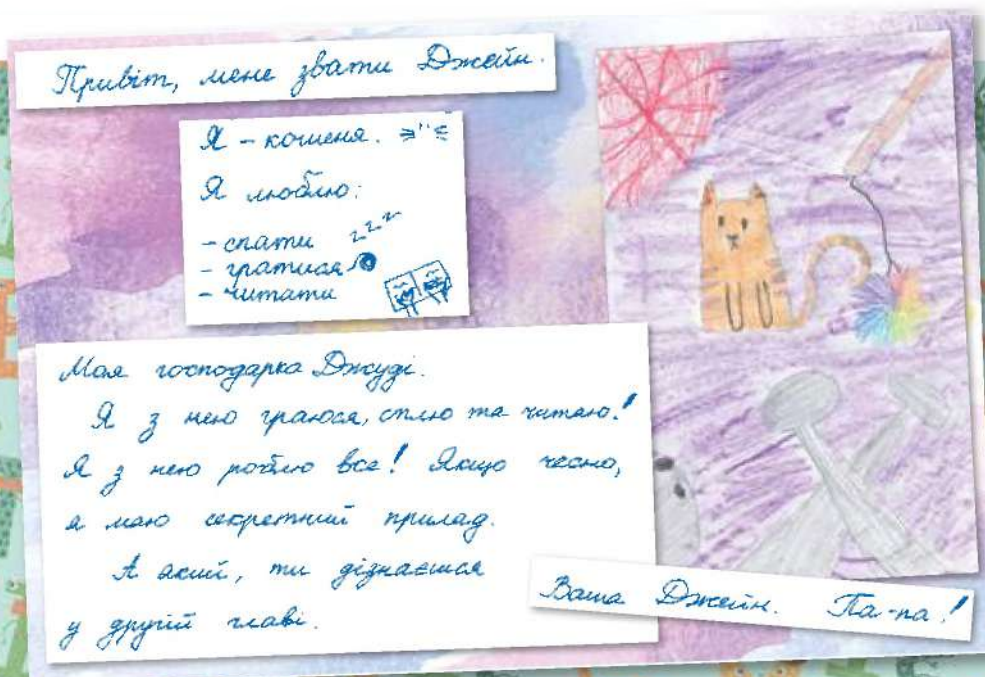 Привіт, мене звати Джейн.
Я - кошеня.
Я люблю:
- спати zzz
- гратися
- читати
Моя господарка Джуді.
Я з нею граюся, сплю та читаю!
Я з нею роблю все! Якщо чесно,
я маю секретний прилад.
А який, ти дізнаєшся
у другій главі.
Ваша Джейн. Па-па!